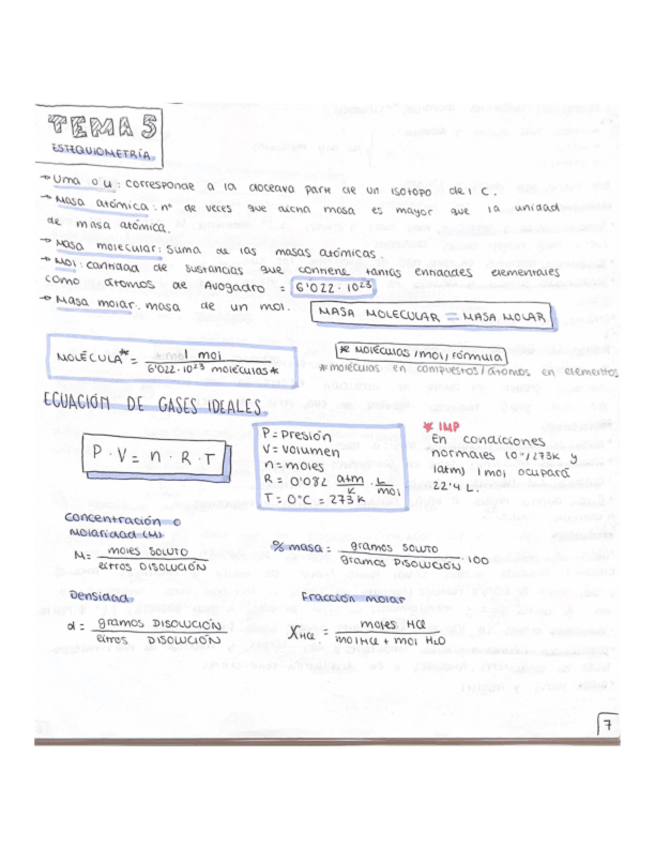 TEMA 5
ESTEQUIOMETRÍA
→ Uma o u: corresponde a la doceava parte de un isotopo del C.
→ Masa atómica: nº de veces que dicha masa es mayor que la unidad
de masa atómica.
→ Masa molecular: suma de las masas atómicas.
→ Mol: cantidad de sustancias que contiene tantas entidades elementales
como átomos de Avogadro = 6'022 · 10²³
→ Masa molar: masa de un mol.
MASA MOLECULAR = MASA MOLAR
MOLÉCULA* = 1 mol / 6'022·10²³ moléculas*
* moléculas / mol, fórmula
* moléculas en compuestos / átomos en elementos
ECUACIÓN DE GASES IDEALES
P · V = n · R · T
P = Presión
V = Volumen
n = moles
R = 0'082 atm/K · L/mol
T = 0°C = 273 K
* IMP
En condiciones
normales (0°/273K y
1atm) 1 mol ocupará
22'4 L.
Concentración o
Molaridad (M)
M = moles SOLUTO / litros DISOLUCIÓN
% masa = gramos SOLUTO / gramos DISOLUCIÓN · 100
Densidad
d = gramos DISOLUCIÓN / litros DISOLUCIÓN
Fracción molar
X HCl = moles HCl / mol HCl + mol H₂O
7